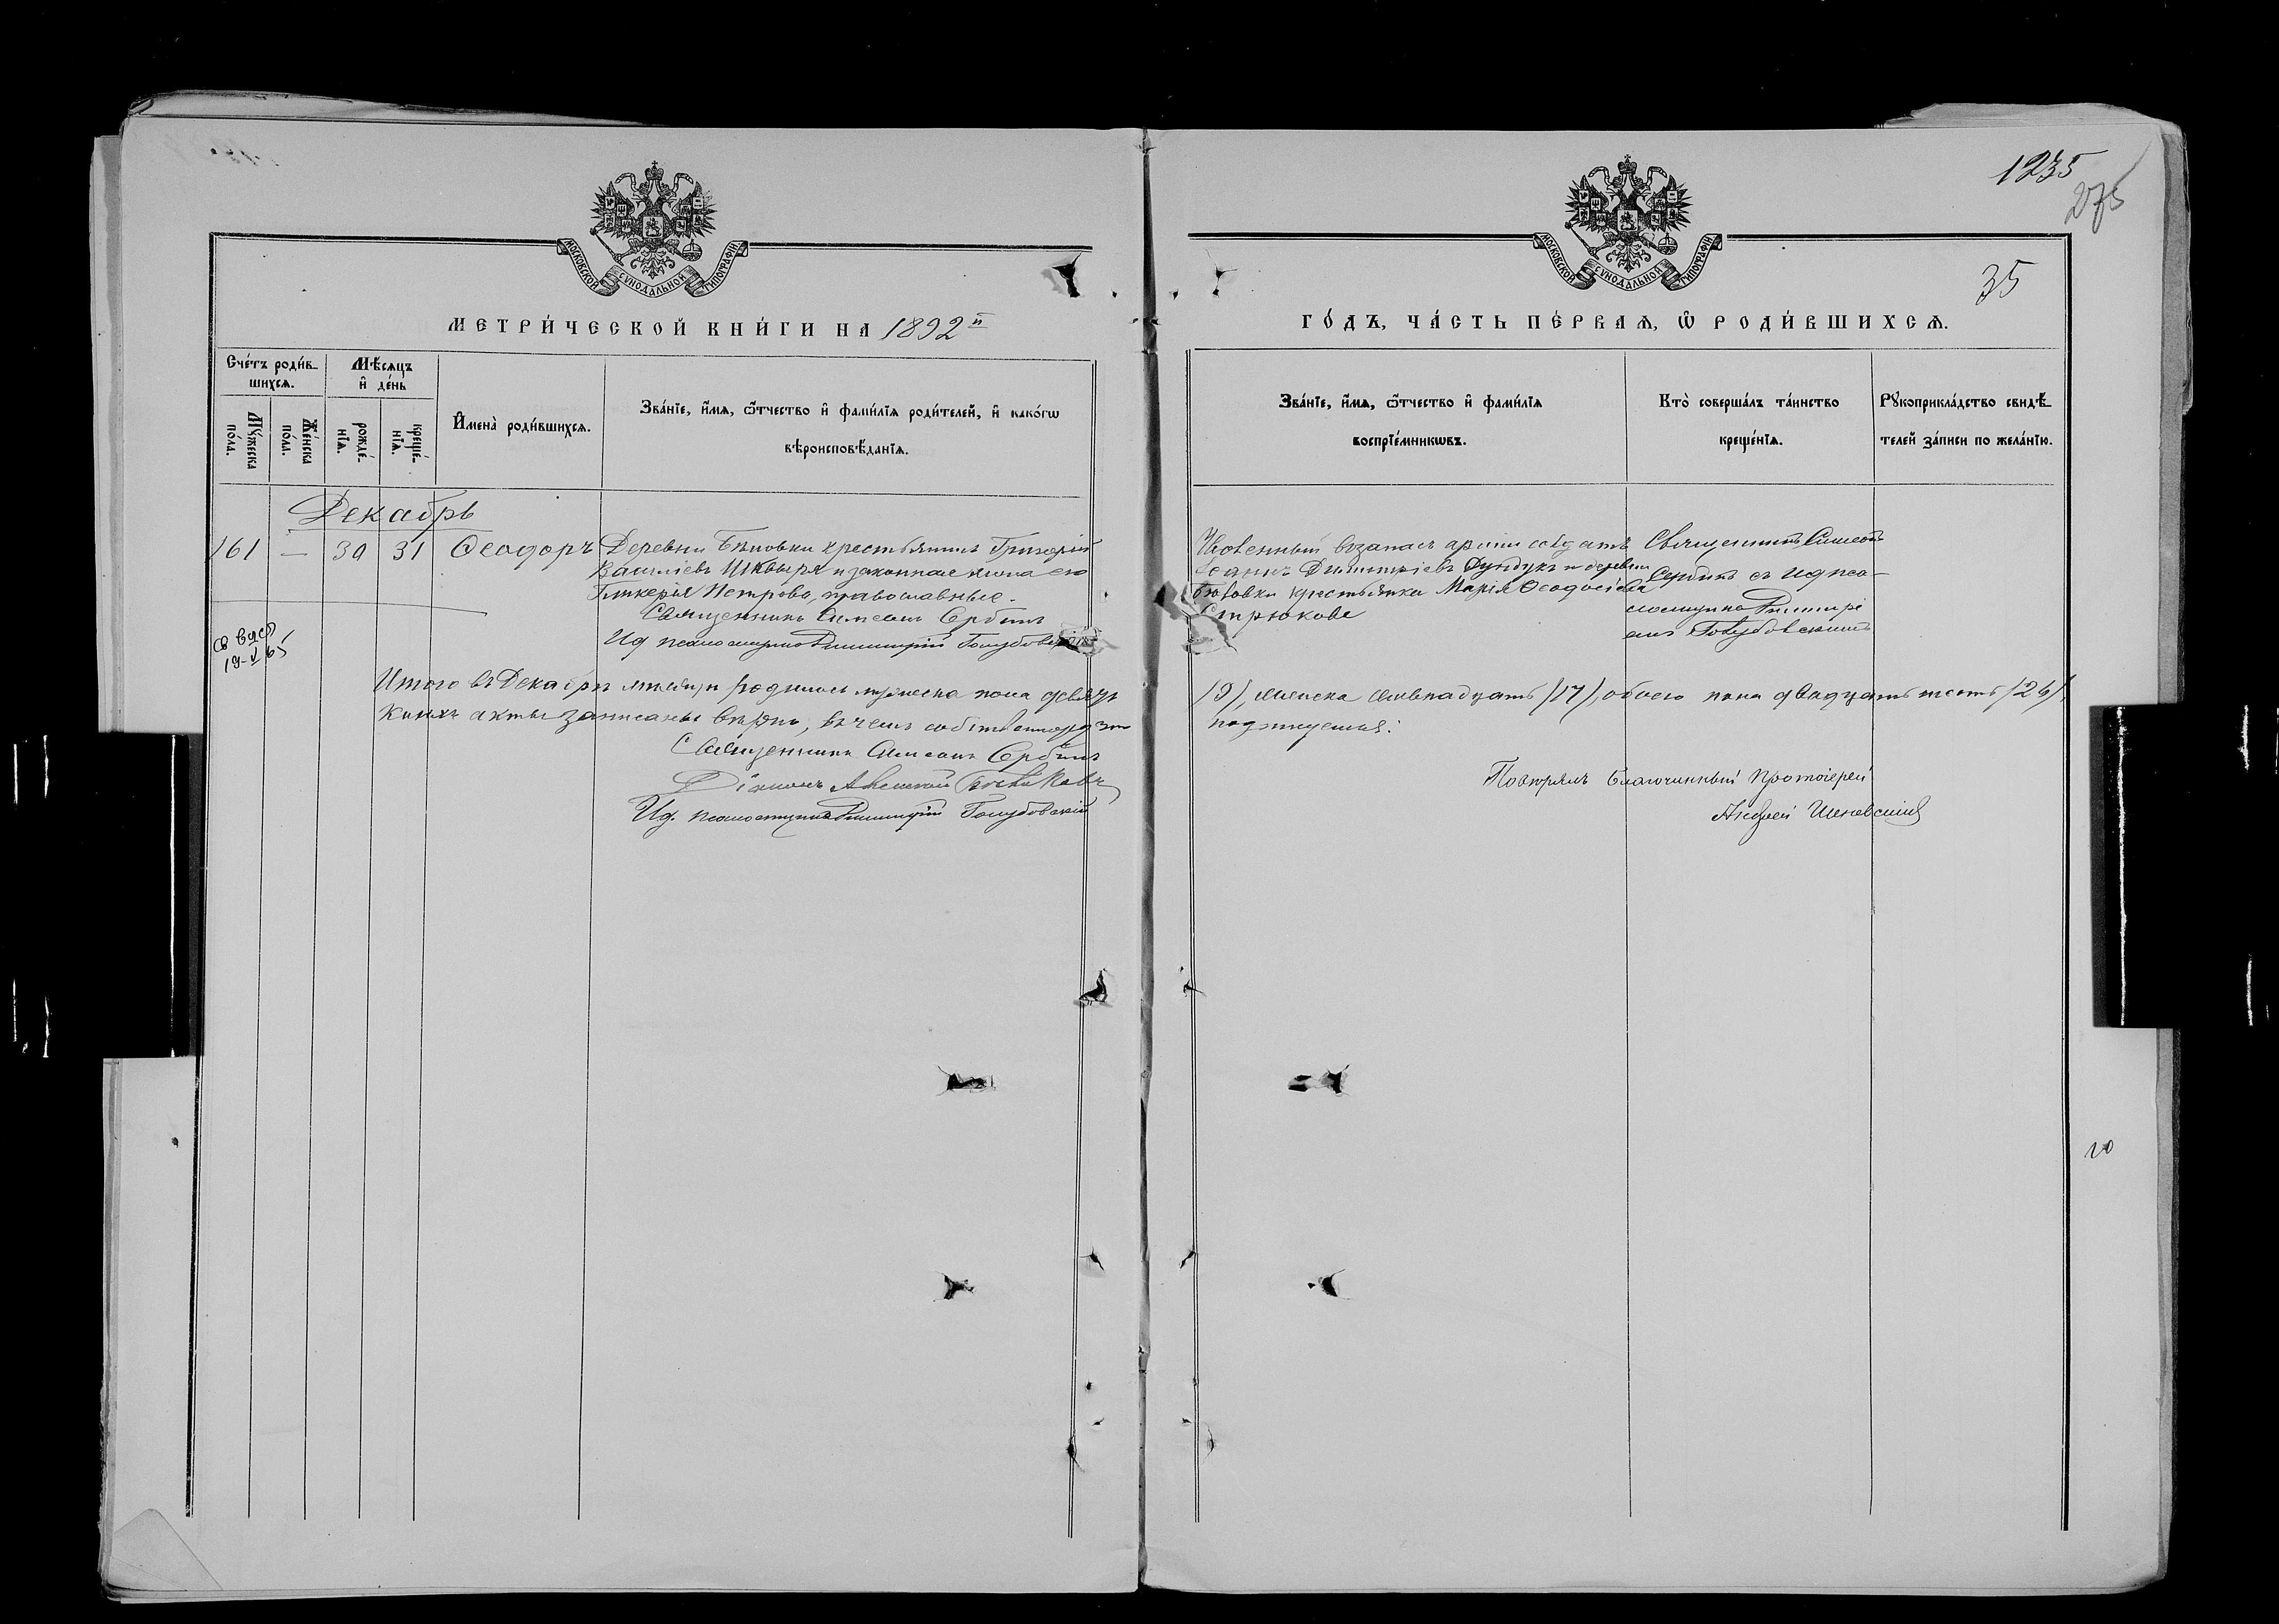 1235
275
35
МОСКОВСКОЙ СУНОДАЛЬНОЙ ТИПОГРАФІИ
МОСКОВСКОЙ СУНОДАЛЬНОЙ ТИПОГРАФІИ
МЕТРИ́ЧЕСКОЙ КНИ́ГИ НА 1892й
ГО́ДЪ, ЧА́СТЬ ПЕ́РВАѦ, Ѽ РОДИ́ВШИХСѦ.
Сче́тъ роди́в-
шихсѧ.
Мѣ́сѧцъ
и҆ де́нь
Мꙋ́жеска
по́ла.
Же́нска
по́ла.
рожде́-
нїѧ.
креще́-
нїѧ.
И҆мена̀ роди́вшихсѧ.
Зва́нїе, и҆́мѧ, ѻ҆́тчество и҆ фами́лїѧ роди́телей, и҆ како́гѡ
вѣроисповѣ́данїѧ.
Зва́нїе, и҆́мѧ, ѻ҆́тчество и҆ фами́лїѧ
воспрїе́мникѡвъ.
Кто̀ соверша́лъ та́инство
креще́нїѧ.
Рꙋкоприкла́дство свидѣ́-
телей за́писи по жела́нїю.
Декабрь
161 — 30 31 Ѳеодоръ
Деревни крестьянинъ Григорій
Васильевъ Шквыря и законная жена его
Гликерія Петрова, православные.
Священникъ Симеонъ Сербинъ
Ид псаломщика Димитрій Голубовскій
запаса арміи солдатъ
Іоаннъ Димитріевъ Дундукъ и деревни
крестьянка Марія Ѳеодосіева
Стрюкова
Священникъ Симеонъ
Сербинъ съ Ид пса-
ломщика Димитрі
емъ Голубовскимъ
19-V 65
Итого въ Декабрѣ мѣсяцѣ родилось мужеска пола девять
/9/, женска семнадцать /17/, обоего пола двадцать шесть /26/,
коихъ акты записаны вѣрно, въ чемъ
подписуемся:
Священникъ Симеонъ Сербинъ
Діаконъ Алексій
Ид. псаломщика Димитрій Голубовскій
Повѣрялъ Благочинный Протоіерей
Андрей